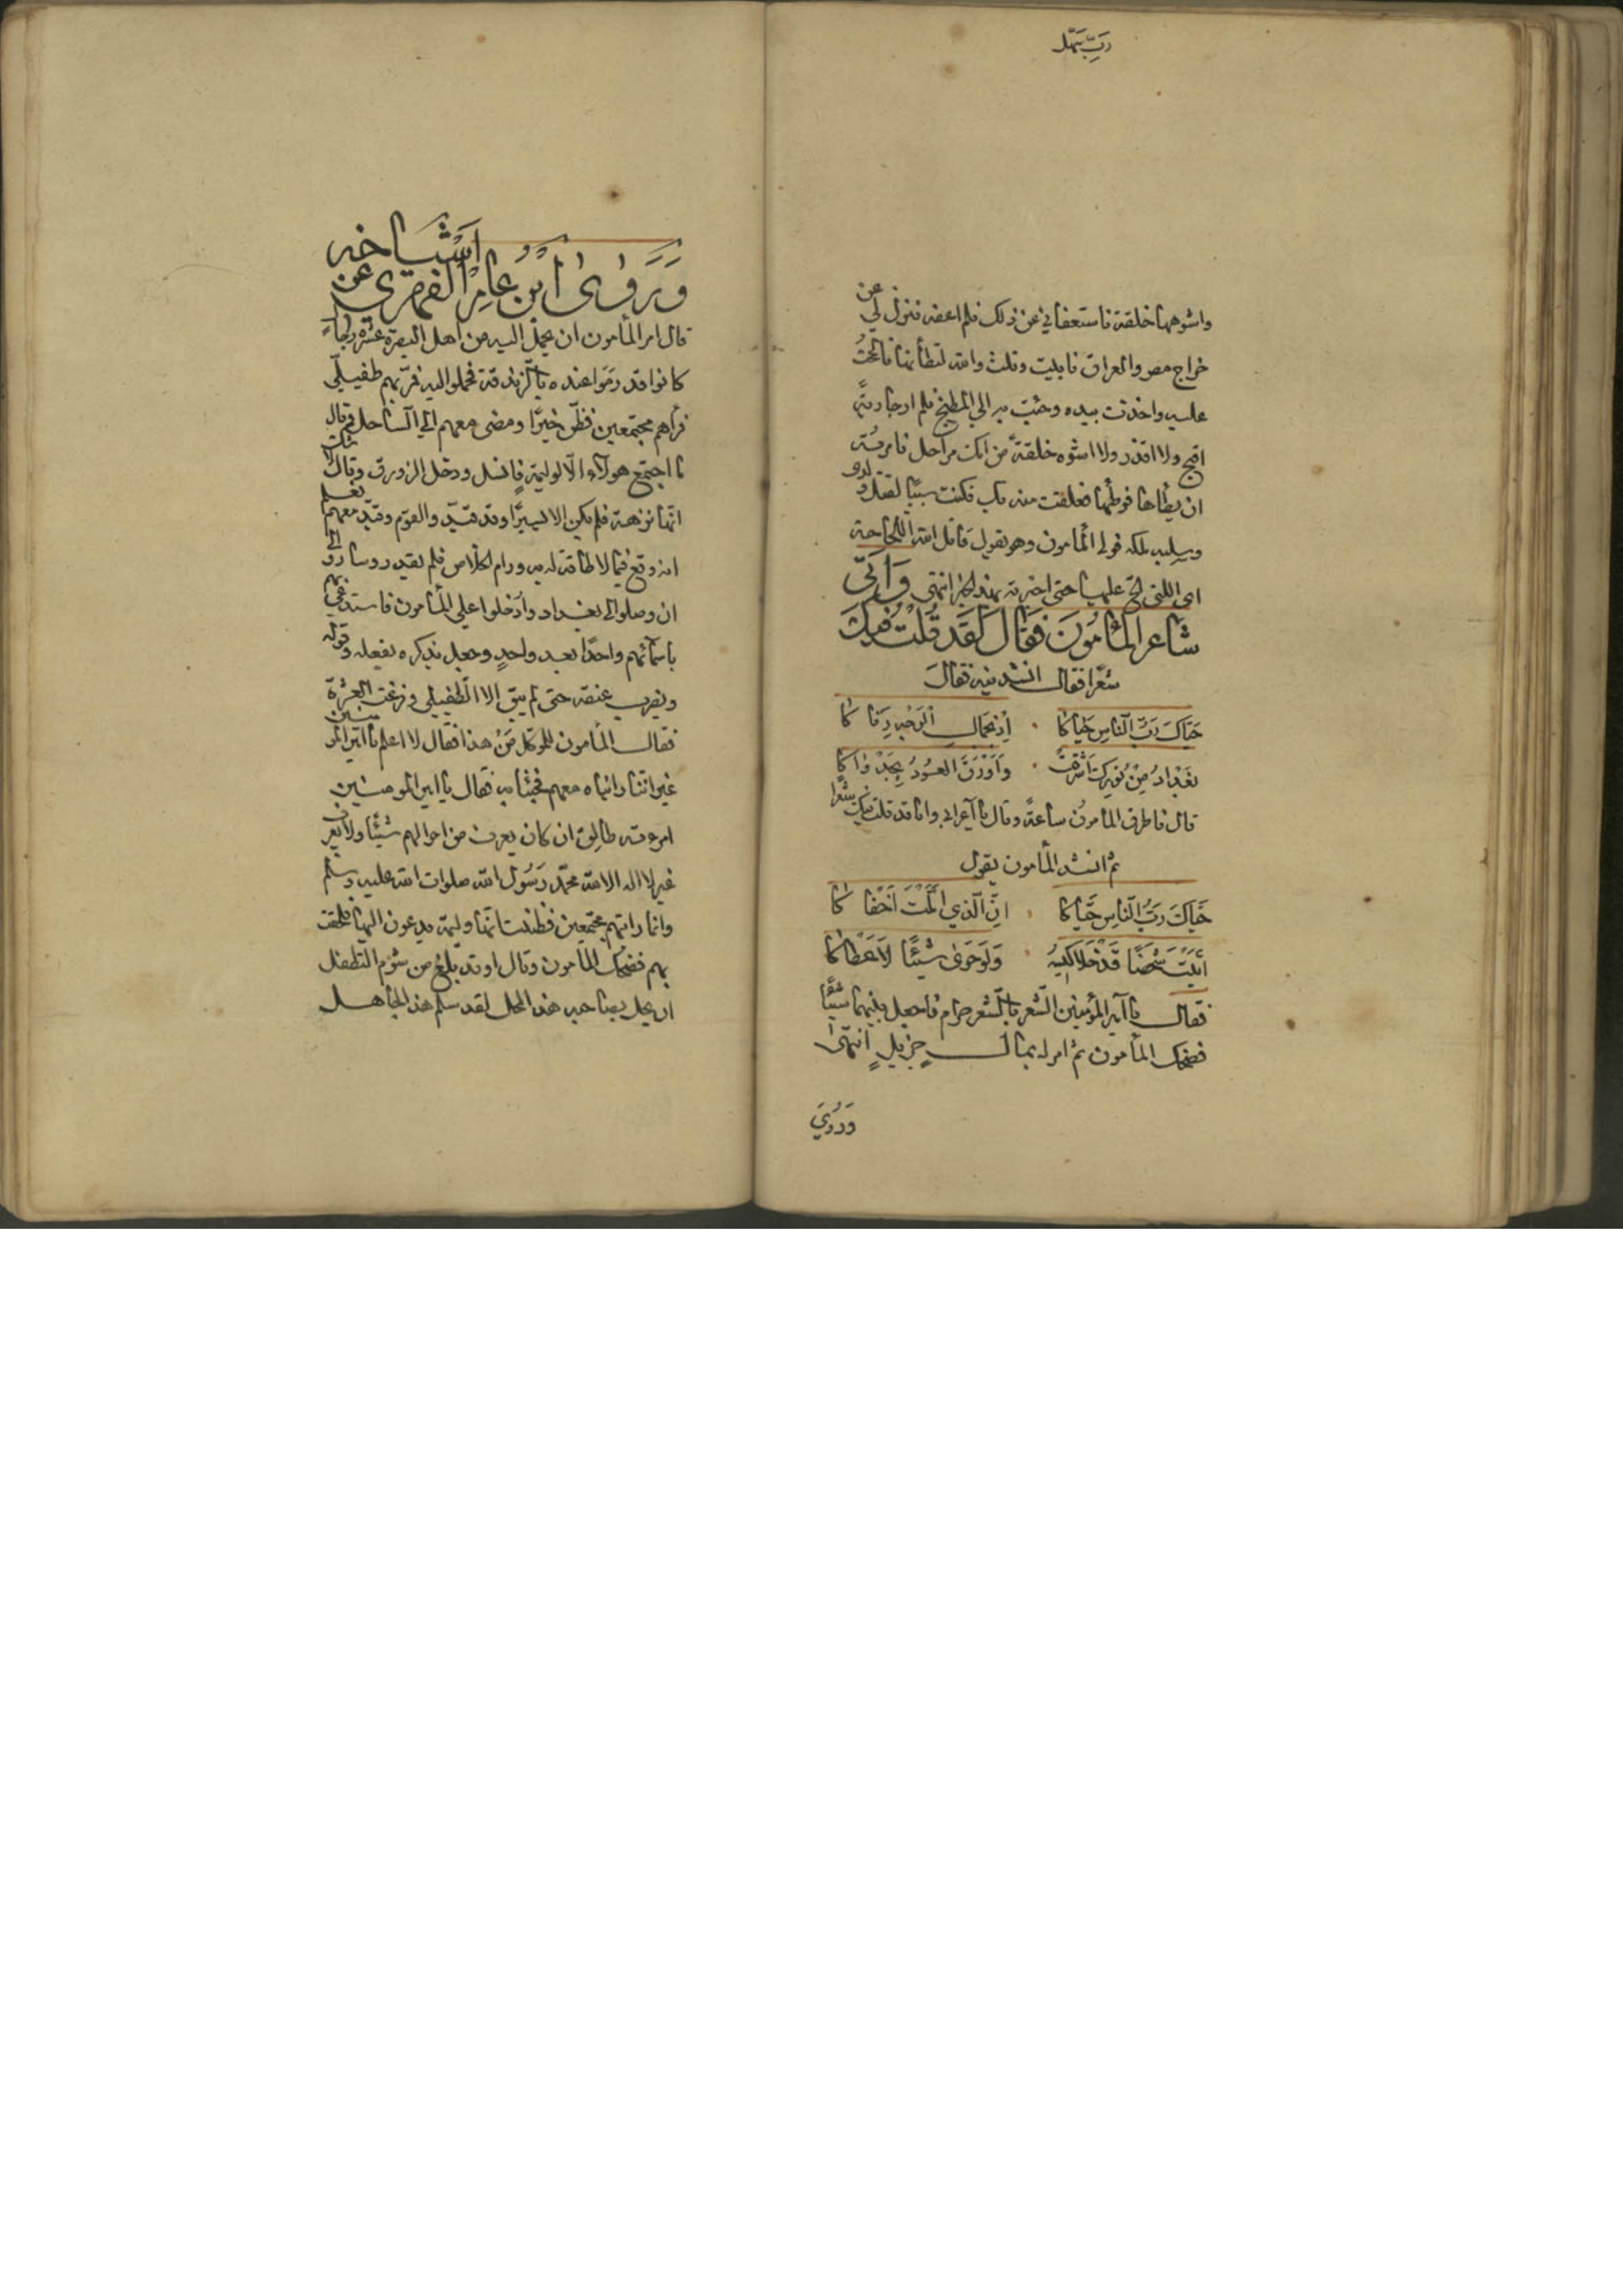 رب سهل
واشوهها خلقة فاستعفاني عن ذلك فلم اعفه فنزل لي عن
خراج مصر والعراق فابيت وقلت والله لتطأنها فالححت
عليه واخذت بيده وجئت به الي المطبخ فلم ار جارية
اقبح ولا اقذر ولا اشوه خلقة من امك مراجل فامرته
ان يطاها فوطئها فعلقت منه بك فكنت سببا لقتل ولدي
وسلبه ملكه فولي المأمون وهو يقول قاتل الله اللجاجة
اي اللتي لح عليها حتى اخبرته بهذا الخبر انتهى وَاَتَى
شَاعر المأمُونَ فَقَالَ لَقَد قُلتُ فيكَ
شعرا فقال انشدنيه فقالَ
حَيَّاكَ رَبُّ النّاسِ حَيَّاكَا ۰ اِذ بَجمالِ الوَجْهِ رَقّاكَا
بَغْدَادُ مِنْ نُورِكَ اَشْرَقَتْ ۰ وَاَوْرَقَ العُودُ بِجَدْوَاكَا
قال فاطرق المأمون ساعةً وقال يا اعرابي وانا قد قلت فيك شعرا
ثم انشد المأمون يقول
حَيَّاكَ رَبُّ النّاسِ حَيَّاكَا ۰ اِنَّ الّذي اَمَّلْتَ اَخْطَاكَا
اَتَيْتَ شَخْصًا قَدْ خَلَا كِيسُهُ ۰ وَلَوْ حَوَى شَيْئًا لَاَعْطَاكَا
فقال يا امير المؤمنين الشعر بالشعر حرام فاجعل بينهما شيئًا
فضحك المأمون ثم امر له بمالٍ جزيلٍ انتهى
وَرُوِيَ
وَرَوَى ابْنُ عَامِرْ الفهري عَن اَشْيَاخه
قال امر المأمون ان يحمل اليه من اهل البصرة عشرة رجالا
كانوا قد رَمَوا عنده بالزندقة فحملوا اليه فمرّ بهم طفيلي
فرأهم مجتمعين فظن خيرًا ومضى معهم الي الساحل وقال
ما اجتمع هولآء الّا لوليمة فانسل ودخل الزورق وقال لا شك
انها نزهة فلم يكن الا يسيرًا وقد قيّد القوم وقيّد معهم فعلم
انه وقع فيما لا طاقة له به ورام الخلاص فلم يقدر وساروا الي
ان وصلوا الي بغداد وادخلوا علي المأمون فاستدعي بهم
باسمائهم واحدًا بعد واحدٍ وجعل يذكره بفعله وقوله
ويضرب عنقه حتى لم يبق الا الطفيلي وفرغت العشرة
فقال المأمون للموكل مَنْ هذا فقال لا اعلم يا امير المومنين
غير اننا رايناه معهم فجئنا به فقال يا امير المومنين
امرءته طالق ان كان يعرف من احوالهم شيئًا ولا يعرف
غير لا اله الا الله محمّد رَسُول الله صلوات الله عليه وسلم
وانما رايتهم مجتمعين فظننت انها وليمة يدعون اليها فلحقت
بهم فضحك المأمون وقال او قد بلغ من شؤم التطفل
ان يحل بصاحبه هذا المحل لقد سلم هذا الجاهل